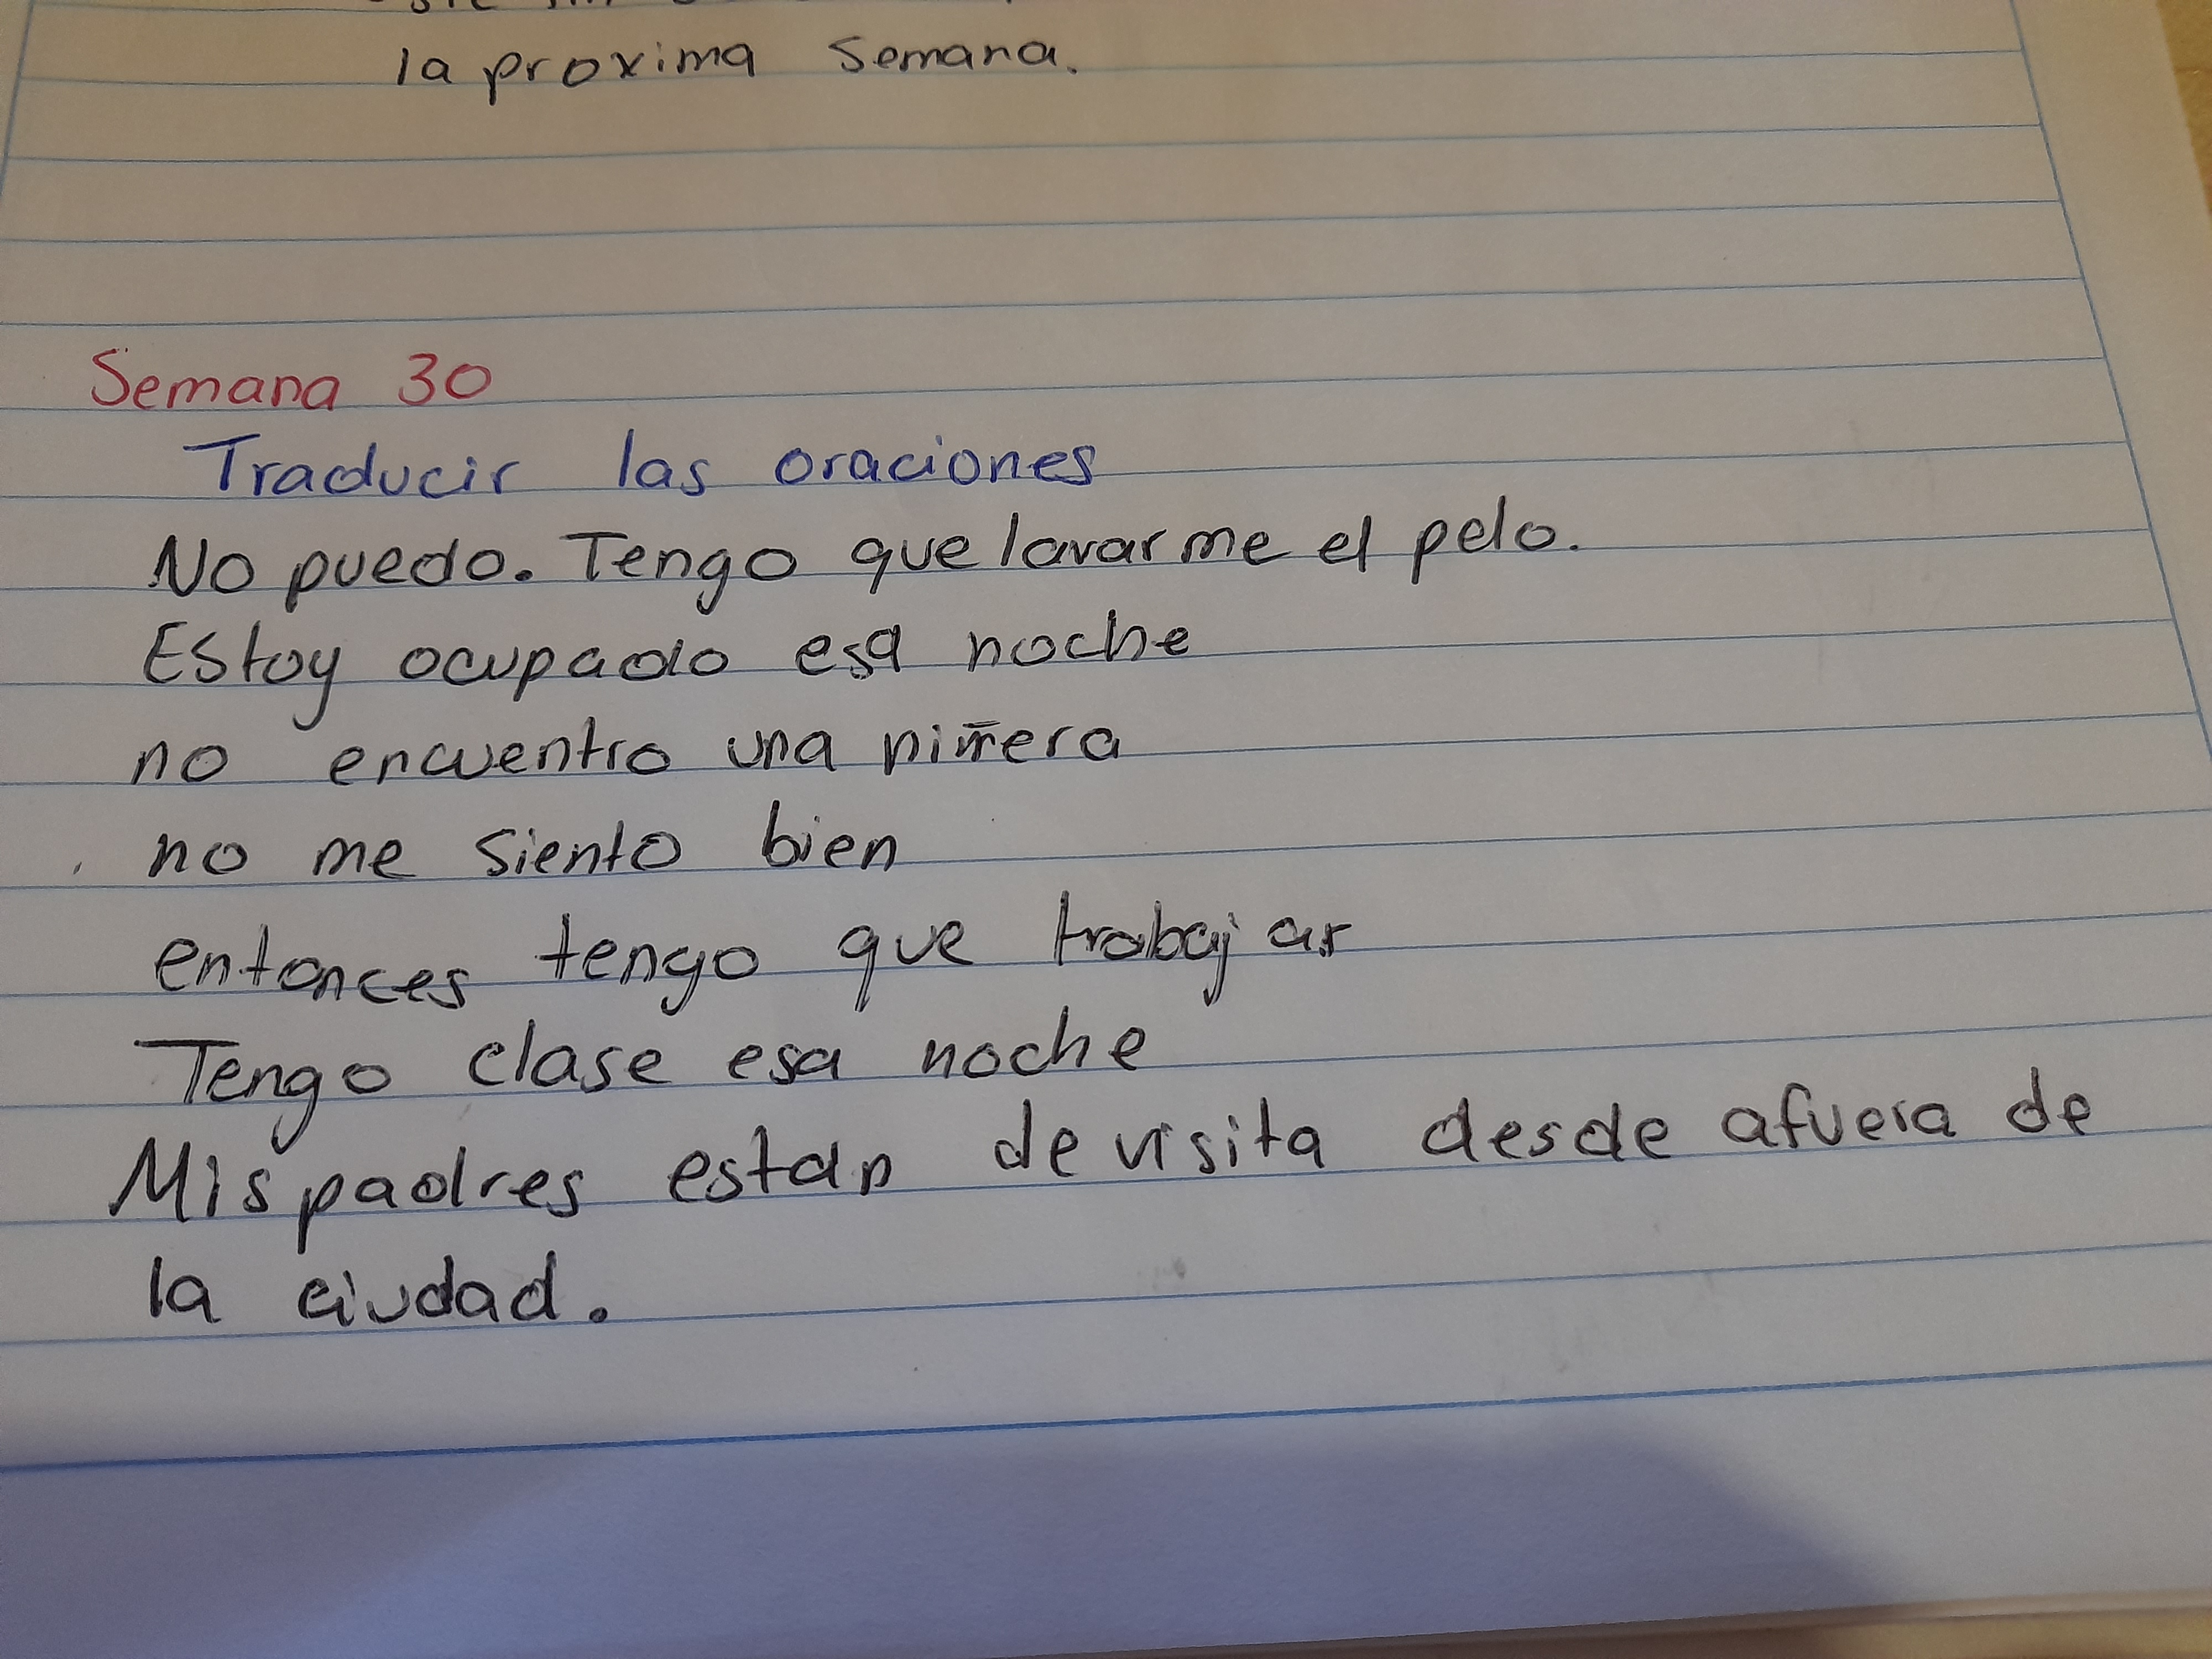 la proxima semana.
Semana 30
Traducir las oraciones
No puedo. Tengo que lavarme el pelo.
Estoy ocupado esa noche
no encuentro una niñera
no me siento bien
entonces tengo que trabajar
Tengo clase esa noche
Mis padres estan de visita desde afuera de
la ciudad.